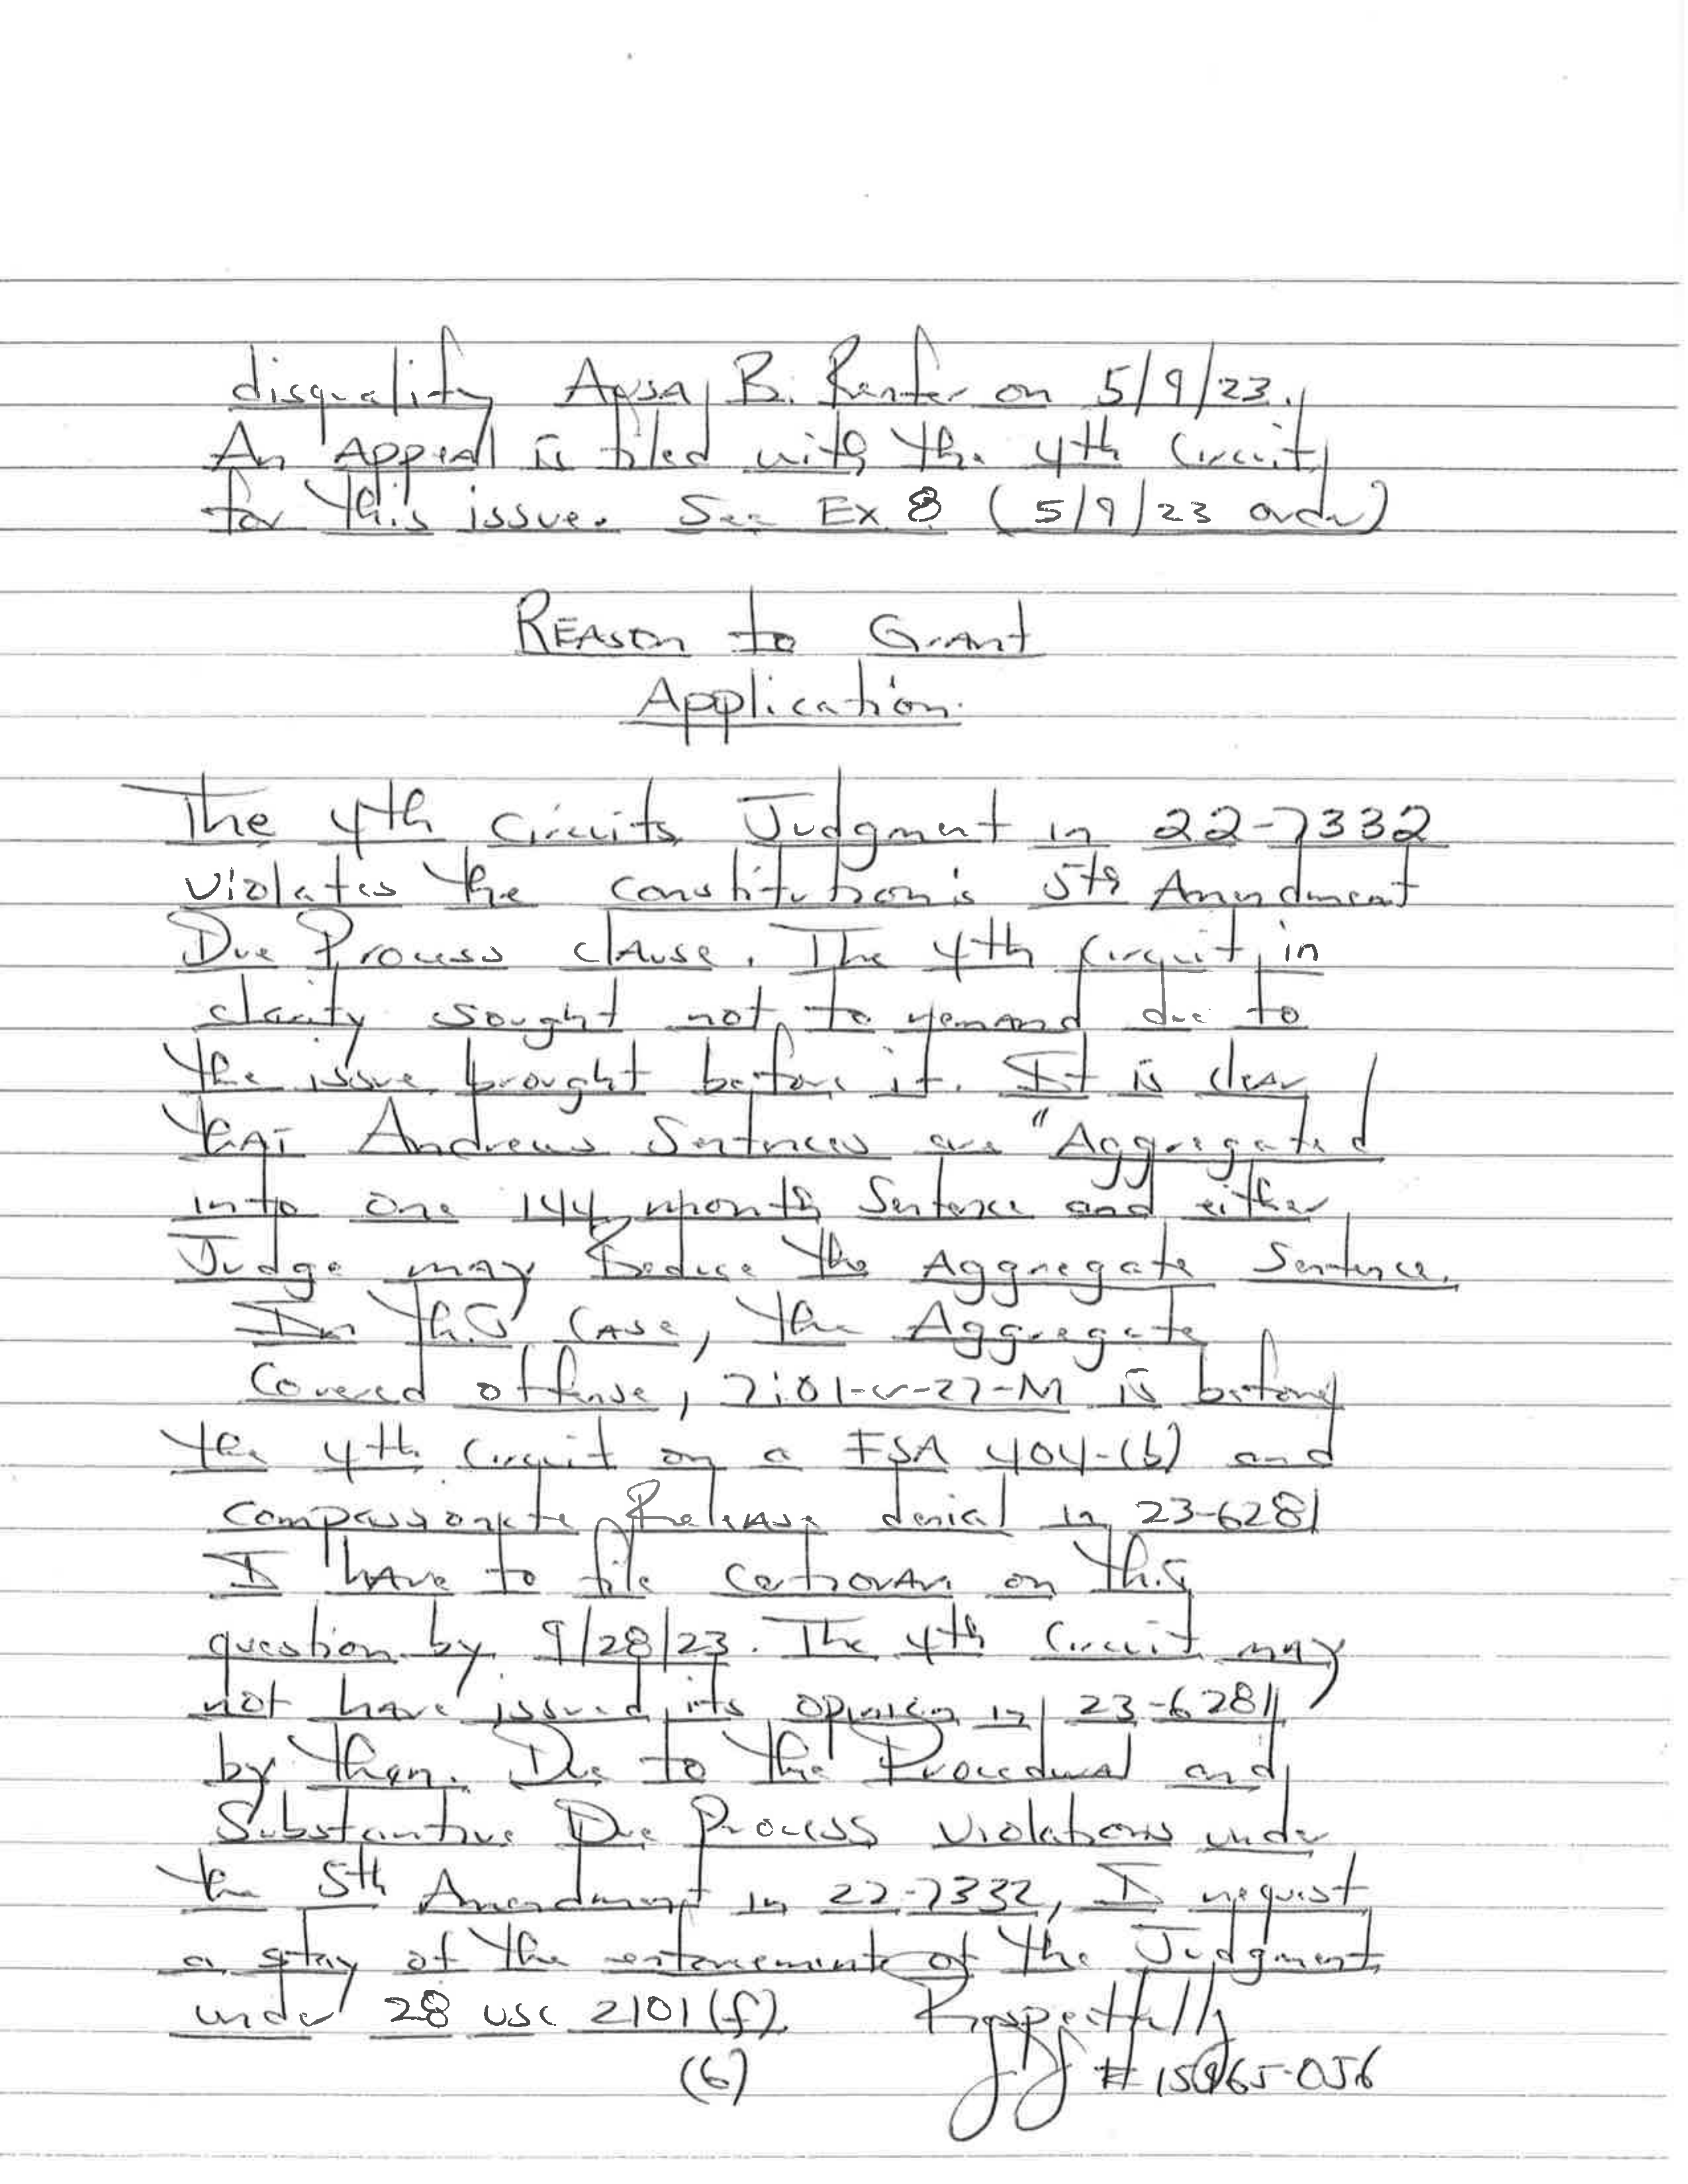 disqualify AUSA, B. Renfer on 5/9/23.
An Appeal is filed with the 4th Circuit
for this issue. See Ex 8 (5/9/23 order)
REASon to Grant
Application.
The 4th Circuits Judgment in 22-7332
violates the constitution's 5th Amendment
Due Process clause. The 4th Circuit, in
clarity sought not to remand due to
the issue brought before it. It is clear
that Andrews Sentences are "Aggregated
into one 144 month Sentence and either
Judge may Reduce the Aggregate Sentence.
In this Case, the Aggregate
Covered offense, 7:01-cr-27-M is before
the 4th Circuit on a FSA 404-(b) and
compassionate Release denial in 23-6281
I have to file certiorari on this
question by 9/28/23. The 4th Circuit may
not have issued its opinion in 23-6281
by then. Due to the Procedural and
Substantive Due Process violations under
the 5th Amendment in 22-7332, I request
a stay of the enforcement of the Judgment
under 28 USC 2101(f). Respectfully
(6) # 15 65-056